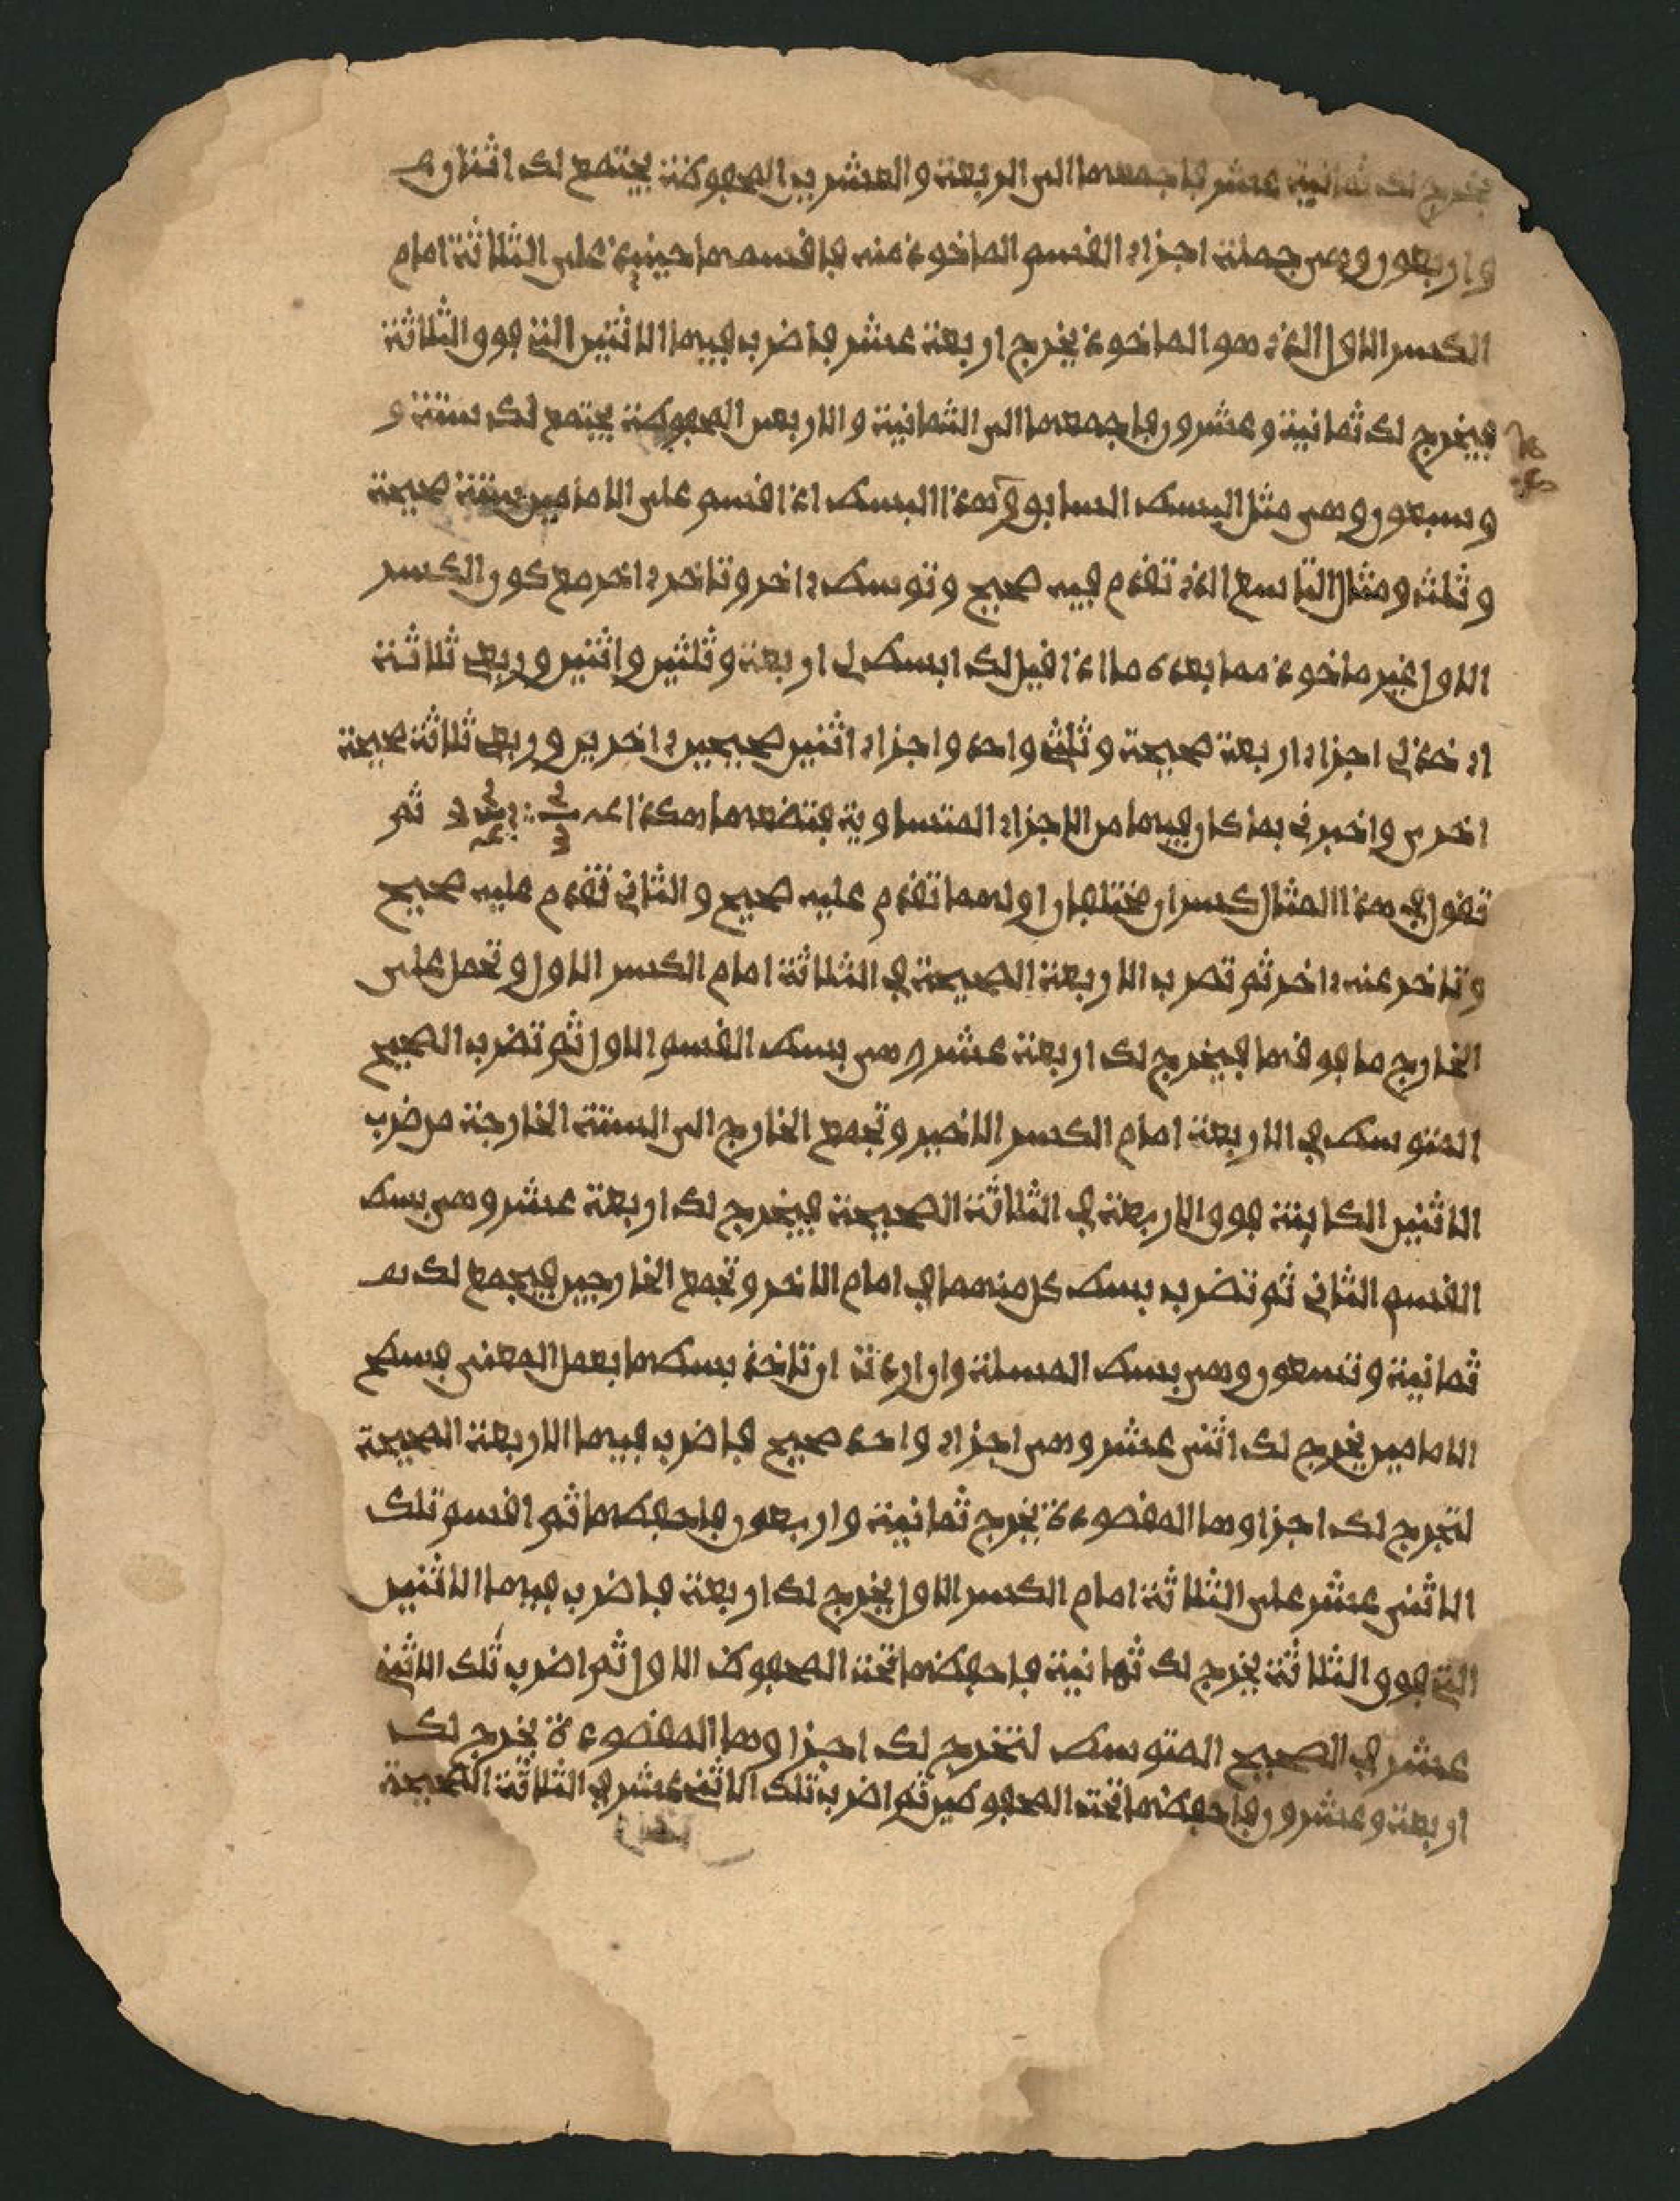 يخرج لك ثمانية عشر فاجمعها الى الاربعة والعشرين المحفوظة يجتمع لك اثنان
واربعون وهي جملة اجزاء القسم الماخوذ منه فاقسمها حينئذ على الثلاثة امام
الكسر الاول الذي هو الماخوذ يخرج اربعة عشر فاضرب فيها الاثنين التي فوق الثلاثة
فيخرج لك ثمانية وعشرون فاجمعها الى الثمانية والاربعين المحفوظة يجتمع لك ستة و
وسبعون وهي مثل البسط السابق وهذا البسط اذا اقسم على الامامين ستة صحيحة
وثلث ومثال التاسع الذي تقدم فيه صحيح وتوسط ءاخر وتاخر ءاخر مع كون الكسر
الاول غير ماخوذ مما بعده ما اذا قيل لك ابسط لي اربعة وثلثين واثنين وربع ثلاثة
اي خذ لي اجزاء اربعة صحيحة وثلث واحد واجزاء اثنين صحيحين ءاخرين وربع ثلاثة صحيحة
اخرى واخبرني بما كان فيها من الاجزاء المتساوية فتضعها هكذا ثم
تقول في هذا المثال كسران مختلفان اولهما تقدم عليه صحيح والثاني تقدم عليه صحيح
وتاخر عنه ءاخر ثم تضرب الاربعة الصحيحة في الثلاثة امام الكسر الاول وتحمل على
الخارج ما فوقها فيخرج لك اربعة عشر وهي بسط القسم الاول ثم تضرب الصحيح
المتوسط في الاربعة امام الكسر الاخير وتجمع الخارج الى الستة الخارجة من ضرب
الاثنين الكاينة فوق الاربعة في الثلاثة الصحيحة فيخرج لك اربعة عشر وهي بسط
القسم الثاني ثم تضرب بسط كل منهما في امام الاخر وتجمع الخارجين فيجمع لك
ثمانية وتسعون وهي بسط المسلة وان اردت ان تاخذ بسطها بعمل المعنى فسطح
الامامين يخرج لك اثنى عشر وهي اجزاء واحد صحيح فاضرب فيها الاربعة الصحيحة
لتخرج لك اجزاوها المقصودة يخرج ثمانية واربعون فاحفظها ثم اقسم تلك
الاثنى عشر على الثلاثة امام الكسر الاول يخرج لك اربعة فاضرب فيها الاثنين
التي فوق الثلاثة يخرج لك ثمانية فاحفظها تحت المحفوظ الاول ثم اضرب تلك الاثنى
عشر في الصحيح المتوسط لتخرج لك اجزاوها المقصودة يخرج لك
اربعة وعشرون فاحفظها تحت المحفوظين ثم اضرب تلك الاثنى عشر في الثلاثة الصحيحة